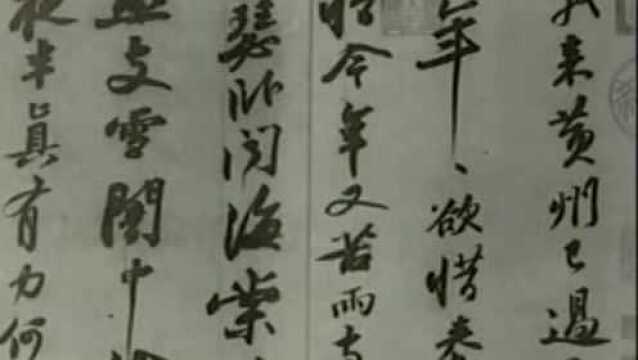 我来黄州已過
年、欲惜春
惜今年又苦雨兩
瑟卧聞海棠
燕支雪闇中
夜半真有力何